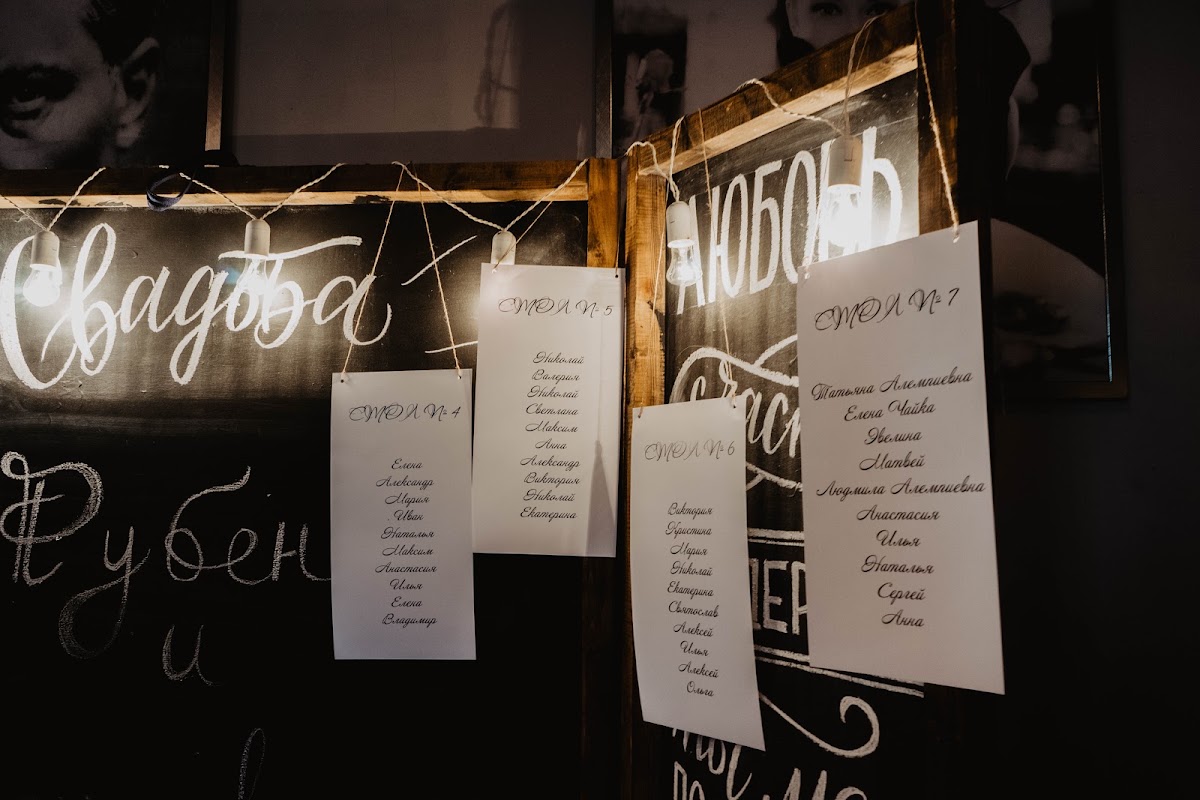 Свадьба
Рубен
и
СТОЛ № 4
Елена
Александр
Мария
Иван
Наталья
Максим
Анастасия
Илья
Елена
Владимир
СТОЛ № 5
Николай
Валерия
Николай
Светлана
Максим
Анна
Александр
Виктория
Николай
Екатерина
ЛЮБОВЬ
СТОЛ № 6
Виктория
Кристина
Мария
Николай
Екатерина
Святослав
Алексей
Илья
Алексей
Ольга
СТОЛ № 7
Татьяна Алемпиевна
Елена Чайка
Эвелина
Матвей
Людмила Алемпиевна
Анастасия
Илья
Наталья
Сергей
Анна